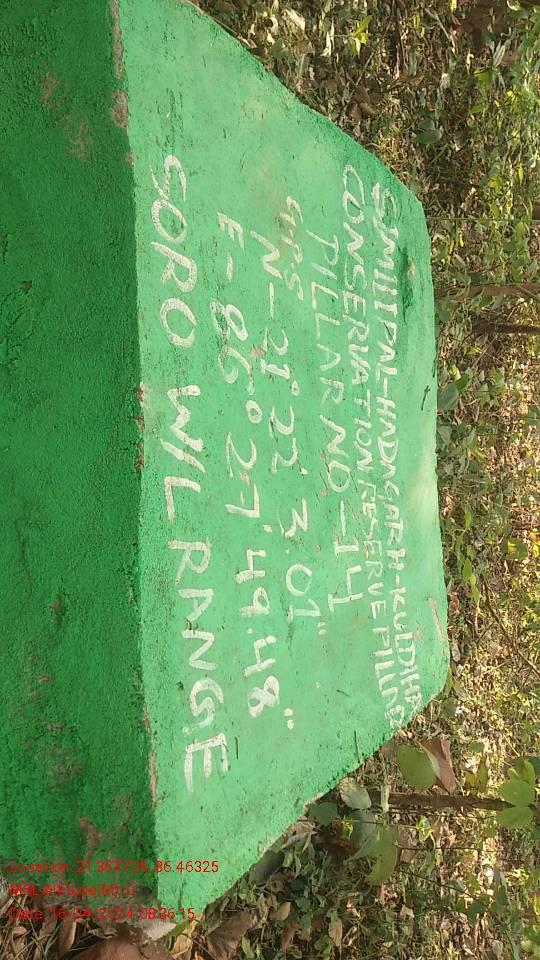 SIMILIPAL-HADAGARH-KULDIHA
CONSERVATION RESERVE PILLAR
PILLAR NO-14
GPS
N-21° 22' 3.01"
E-86° 27' 49.48"
SORO W/L RANGE
Location: 21.367705, 86.46325
Date: 16-04-2024 08:36:15